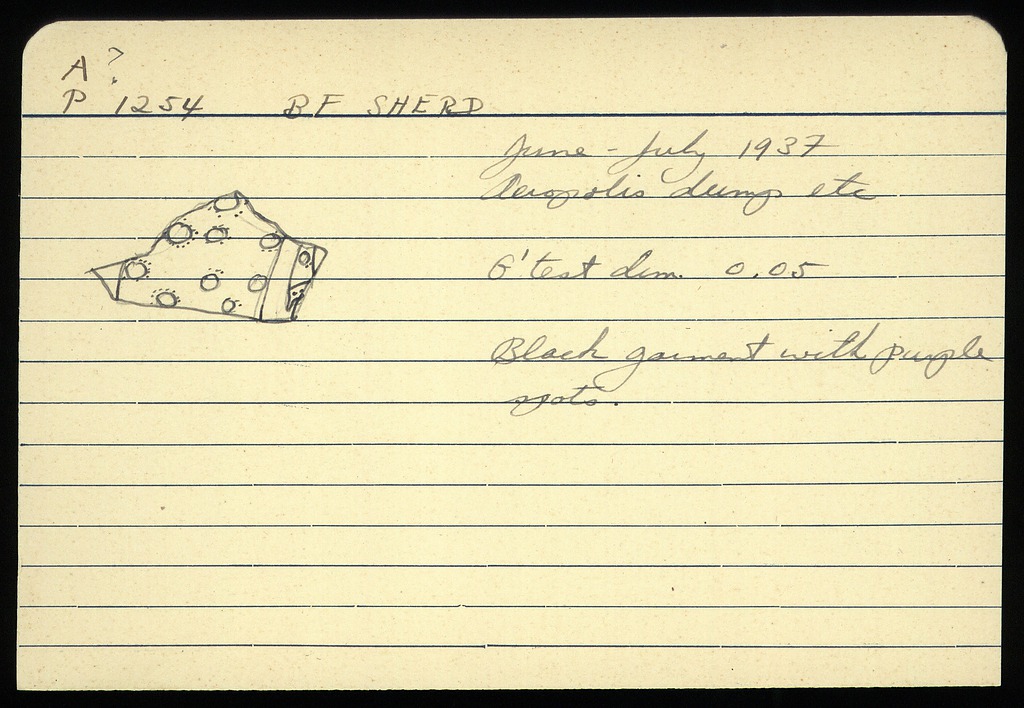 A?
P 1254 BF SHERD
June - July 1937
Acropolis dump etc
G'test dim. 0.05
Black garment with purple
spots.